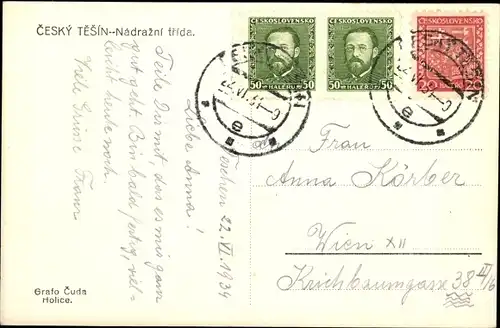 ČESKÝ TĚŠÍN--Nádražní třída.
ČESKOSLOVENSKO
50 HALÉŘŮ 50
ČESKOSLOVENSKO
50 HALÉŘŮ 50
ČESKOSLOVENSKO
Teschen 22. VI. 1934
Liebe Anna!
Teile Dir mit, das es mir ganz
gut geht. Bin bald fertig, viel-
leicht heute noch.
Viele Grüsse Franz
Frau
Anna Körber
Wien XII
38
Grafo Čuda
Holice.